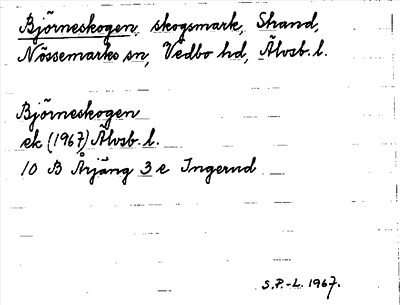 Björneskogen, skogsmark, Strand,
Nössemarks sn, Vedbo hd, Älvsb. l.
Björneskogen
ek (1967) Älvsb. l.
10 B Årjäng 3 e Ingerud
S.P.-L. 1967.